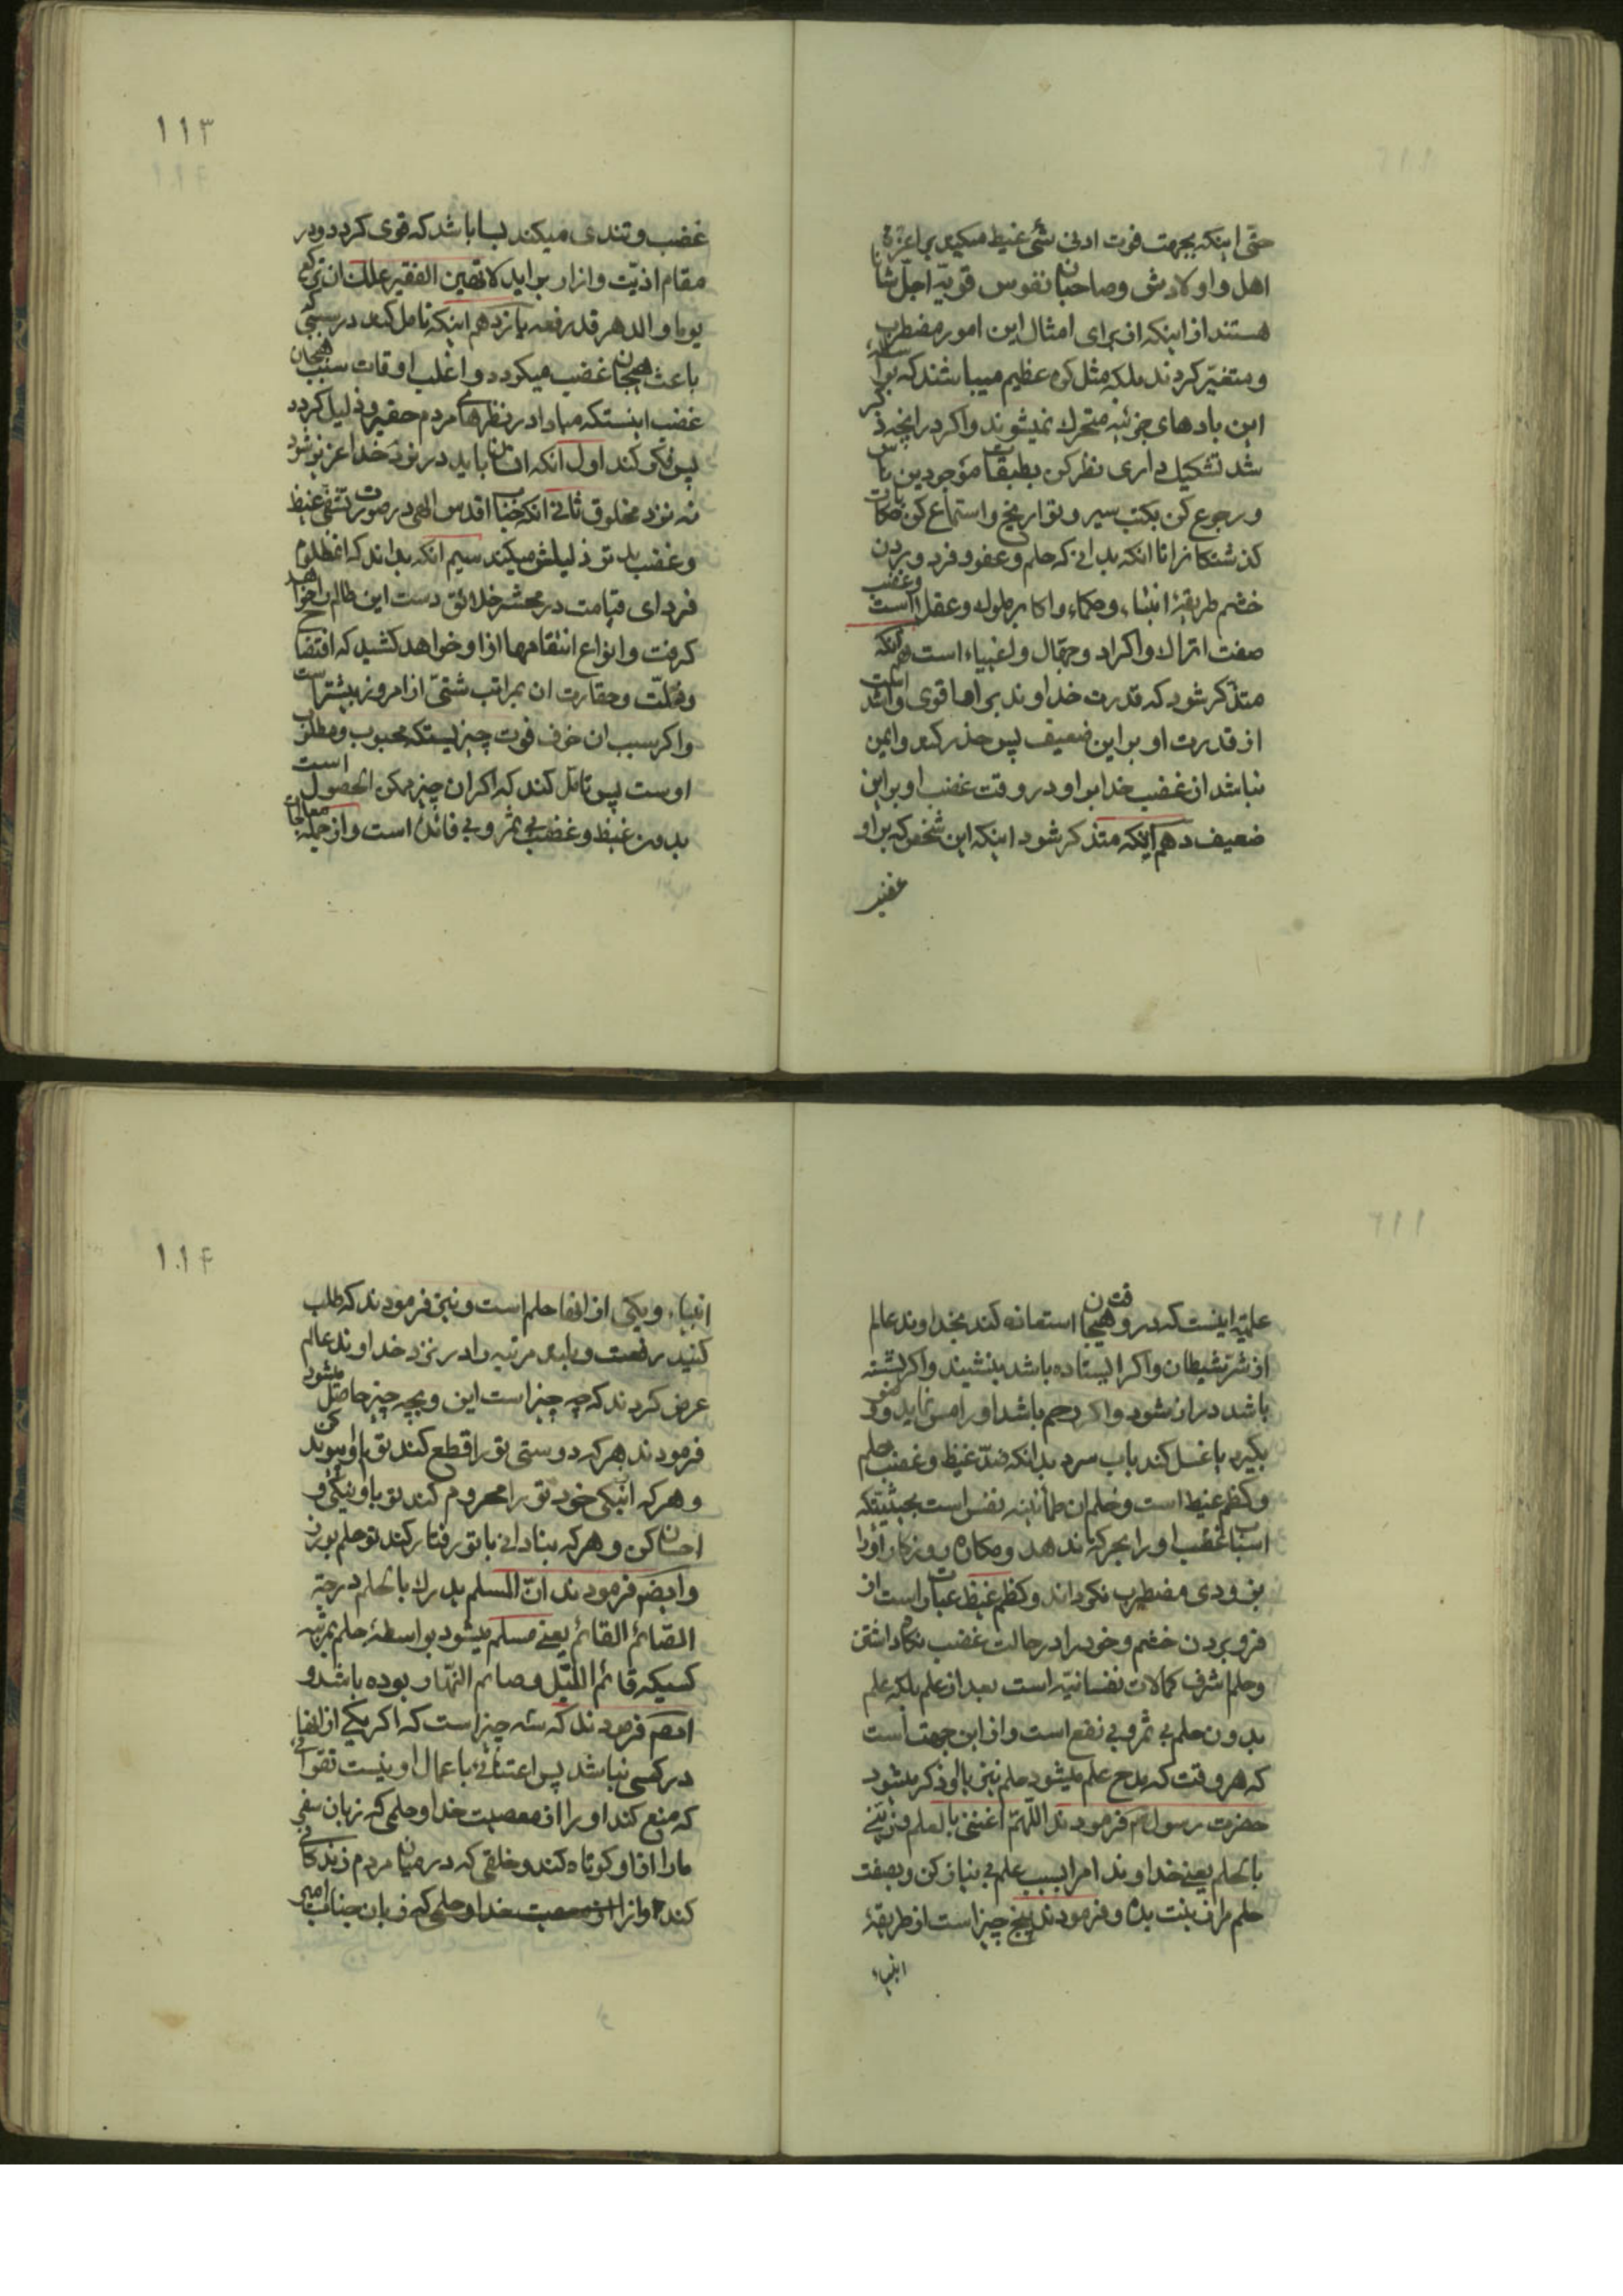 حتی اینکه بجهت فوت ادنی شئ غیظ میکند بر اعزه
اهل و اولادش و صاحبان نفوس قویّه اجلّ شأنا
هستند از اینکه از برای امثال این امور مضطرب
و متغیّر کردند بلکه مثل کوه عظیم میباشند که بواسطه
این بادهای جزئیه متحرک نمیشوند و اکر در انچه ذکر
شد تشکیک داری نظر کن بطبقات موجودین ناس
و رجوع کن بکتب سیر و تواریخ و استماع کن حکایات
کذشتکانرا تا انکه بدانی که حلم و عفو و فرو بردن
خشم طریقهٔ انبیاء و حکماء و اکابر ملوک و عقلا است و غضب
صفت اتراک و اکراد و جهّال و اغبیاء است نهم آنکه
متذکر شود که قدرت خداوند بر اها قوی و اشد است
از قدرت او بر این ضعیف پس حذر کند و ایمن
نباشد از غضب خدا بر او در وقت غضب او بر این
ضعیف دهم آنکه متذکر شود اینکه این شخص که بر او
غضب
۱۱۳
غضب و تندی میکند بسا باشد که قوی کردد و در
مقام اذیّت و ازار براید لا تهین الفقیر علک ان ترکع
یوما و الدهر قد رفعه یازدهم اینکه تامل کند در سببی که
باعث هیجان غضب میکردد و اغلب اوقات سبب هیجان
غضب اینستکه مبادا در نظرهای مردم حقیر و ذلیل کردد
پس فکر کند اول انکه انسان باید در نزد خدا عزیز شود
نه نزد مخلوق ثانی انکه جناب اقدس الهی در صورت تشفی غیظ
و غضب بدتر ذلیلش میکند سیم انکه بداند که ان مظلوم
فردای قیامت در محشر خلائق دست این ظالم را خواهد
کرفت و انواع انتقامها از او خواهد کشید که افتضاح
و ذلّت و حقارت ان بمراتب شتّی از امروز بیشتر است
و اکر سبب ان خوف فوت چیزیستکه محبوب و مطلوب
اوست پس تامّل کند که اکر ان چیز ممکن الحصول است
بدون غیظ و غضب بی ثمر و بی فائده است و از جمله معالجات
علمیّه اینست که در وقت هیجان استعانه کند بخداوند عالم
از شرّ شیطان و اکر ایستاده باشد بنشیند و اکر نشسته
باشد دراز شود و اکر رحم باشد او را مس نماید وضو
بکیرد یا غسل کند باب سرد بدانکه ضدّ غیظ و غضب حلم
و کظم غیظ است و حلم ان طمأنینه نفس است بحیثیتکه
اسباب غضب او را بحرکة ندهد و مکاره روزکار او را
بزودی مضطرب نکرداند و کظم غیظ عبارت است از
فرو بردن خشم و خود را در حالت غضب نکاه داشتن
و حلم اشرف کمالات نفسانیّه است بعد از علم بلکه علم
بدون حلم بی ثمر و بی نفع است و از این جهت است
که هر وقت که مدح علم میشود حلم نیز با او ذکر میشود
حضرت رسول ص فرمودند اللّهم اغننی بالعلم و زیّنی
بالحلم یعنی خداوندا مرا بسبب علم بی نیاز کن و بصفت
حلم مرا زینت بده و فرمودند پنج چیز است از طریقهٔ
انبیاء
۱۱۴
انبیاء و یکی از انها حلم است و نیز فرمودند که طلب
کنید رفعت و بلندی مرتبه را در نزد خداوند عالم
عرض کردند که چه چیز است این و بچه چیز حاصل میشود
فرمودند هر که دوستی تو را قطع کند تو با او پیوند کن
و هر که از نیکی خود تو را محروم کند تو با او نیکی و
احسان کن و هر که بنادانی با تو رفتار کند تو حلم بورز
و ایضا فرمودند انّ المسلم یدرک بالحلم درجة
الصّائم القائم یعنی مسلم میشود بواسطهٔ حلم بمرتبه
کسیکه قائم اللّیل و صائم النّهار بوده باشد و
فرمودند که سه چیز است که اکر یکی از انها
در کسی نباشد پس اعتنائی باعمال او نیست تقوائی
که منع کند او را از معصیت خدا و حلمی که زبان سفیه
را از او کوتاه کند و خلقی که در میان مردم زندکانی
کند